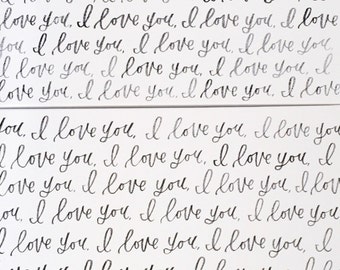 love you. I love you. I love you. I love
you. I love you. I love you. I love you.
love you. I love you. I love you. I
love you. I love you. I love you. I love
you. I love you. I love you. I love
I love you. I love you. I love you.
love you. I love you. I love you. I
love you. I love you. I love you.
you. I love you. I love you. I love
I love you. I love you. I love you. I